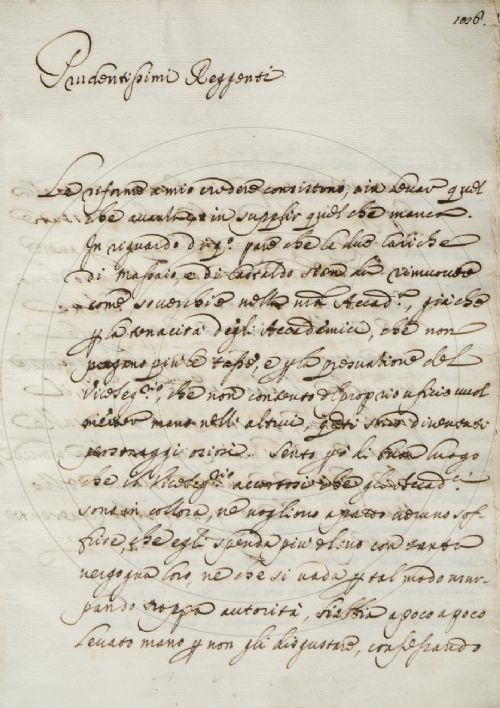 1016.
Prudentissimi Reggenti
Le riforme a mio credere consistono, o in levar quel
che avanza, o in supplir quel che manca.
In riguardo di q.º pare che le due cariche
di Massaio, e di Castaldo siano da rimuovere
come soverchie nella nra Accad.ª, già che
p la tenacità degli Accademici, che non
pagano più le tasse, e p la
Viceseg.rio, che non contento del proprio ufficio vuol
metter mano nelli altrui, questi sono diventati
personaggi oziosi. Sento po di buon luogo
che il Viceseg.rio accortosi che gli Accad.ci
sono in collora, ne vogliono a patto veruno sof-
frire, che egli spenda più del suo con tanta
vergogna loro, ne che si vada p tal modo usur-
pando troppa autorità, si abbia a poco a poco
levato mano p non gli disgustare, confessando